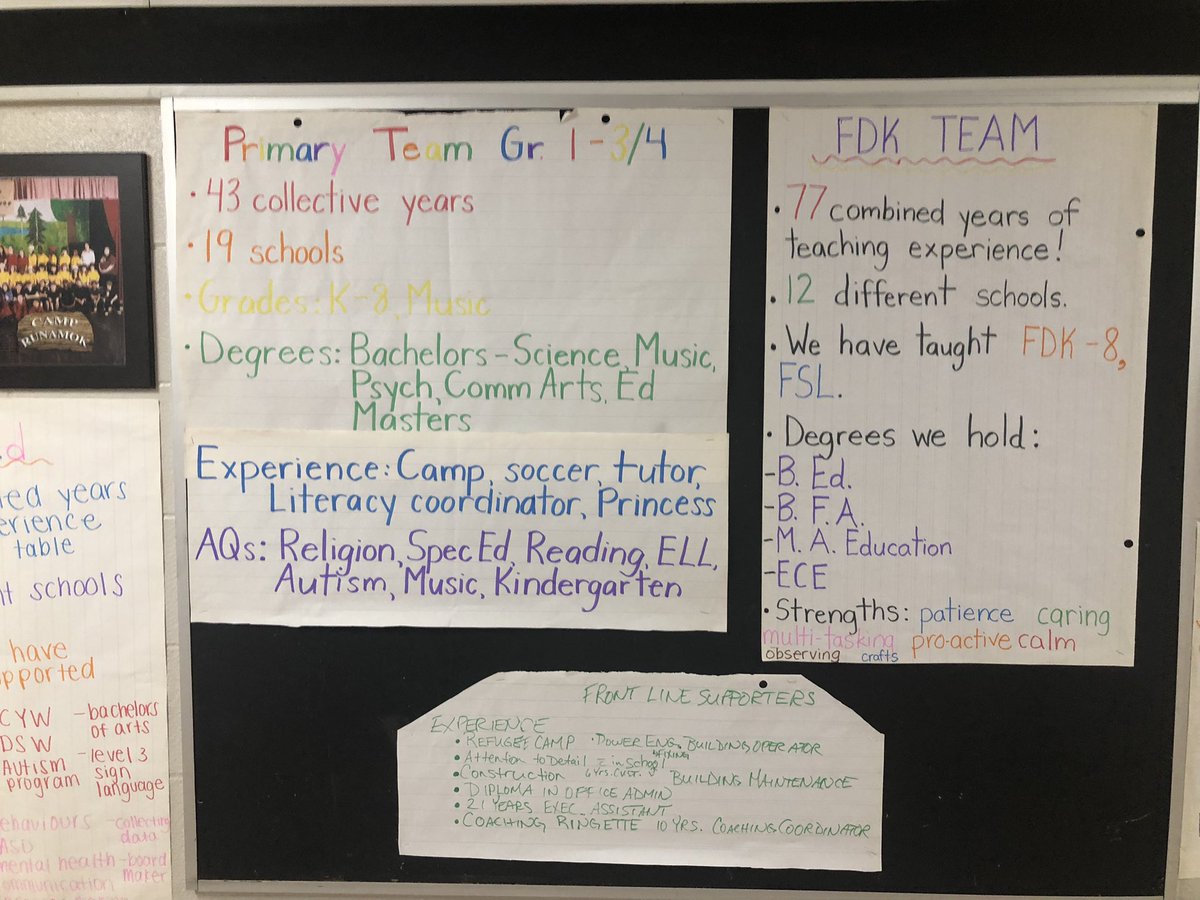 CAMP
RUNAMOK
Primary Team Gr. 1-3/4
• 43 collective years
• 19 schools
• Grades: K-8, Music
• Degrees: Bachelors - Science, Music,
Psych, Comm Arts, Ed
Masters
Experience: Camp, soccer, tutor,
Literacy coordinator, Princess
AQs: Religion, Spec Ed, Reading, ELL,
Autism, Music, Kindergarten
FDK TEAM
• 77 combined years of
teaching experience!
• 12 different schools.
• We have taught FDK-8,
FSL.
• Degrees we hold:
- B. Ed.
- B. F. A.
- M. A. Education
- ECE
• Strengths: patience caring
multi-tasking pro-active calm
observing crafts
FRONT LINE SUPPORTERS
EXPERIENCE
• REFUGEE CAMP • POWER ENG. BUILDING OPERATOR
• Attention to Detail in School
• Construction 6 yrs. BUILDING MAINTENANCE
• DIPLOMA IN OFFICE ADMIN
• 21 YEARS EXEC. ASSISTANT
• COACHING RINGETTE 10 YRS. COACHING COORDINATOR
years
table
schools
have
CYW - bachelors
of arts
DSW - level 3
AUTISM sign
program language
ASD data
mental health - board
maker